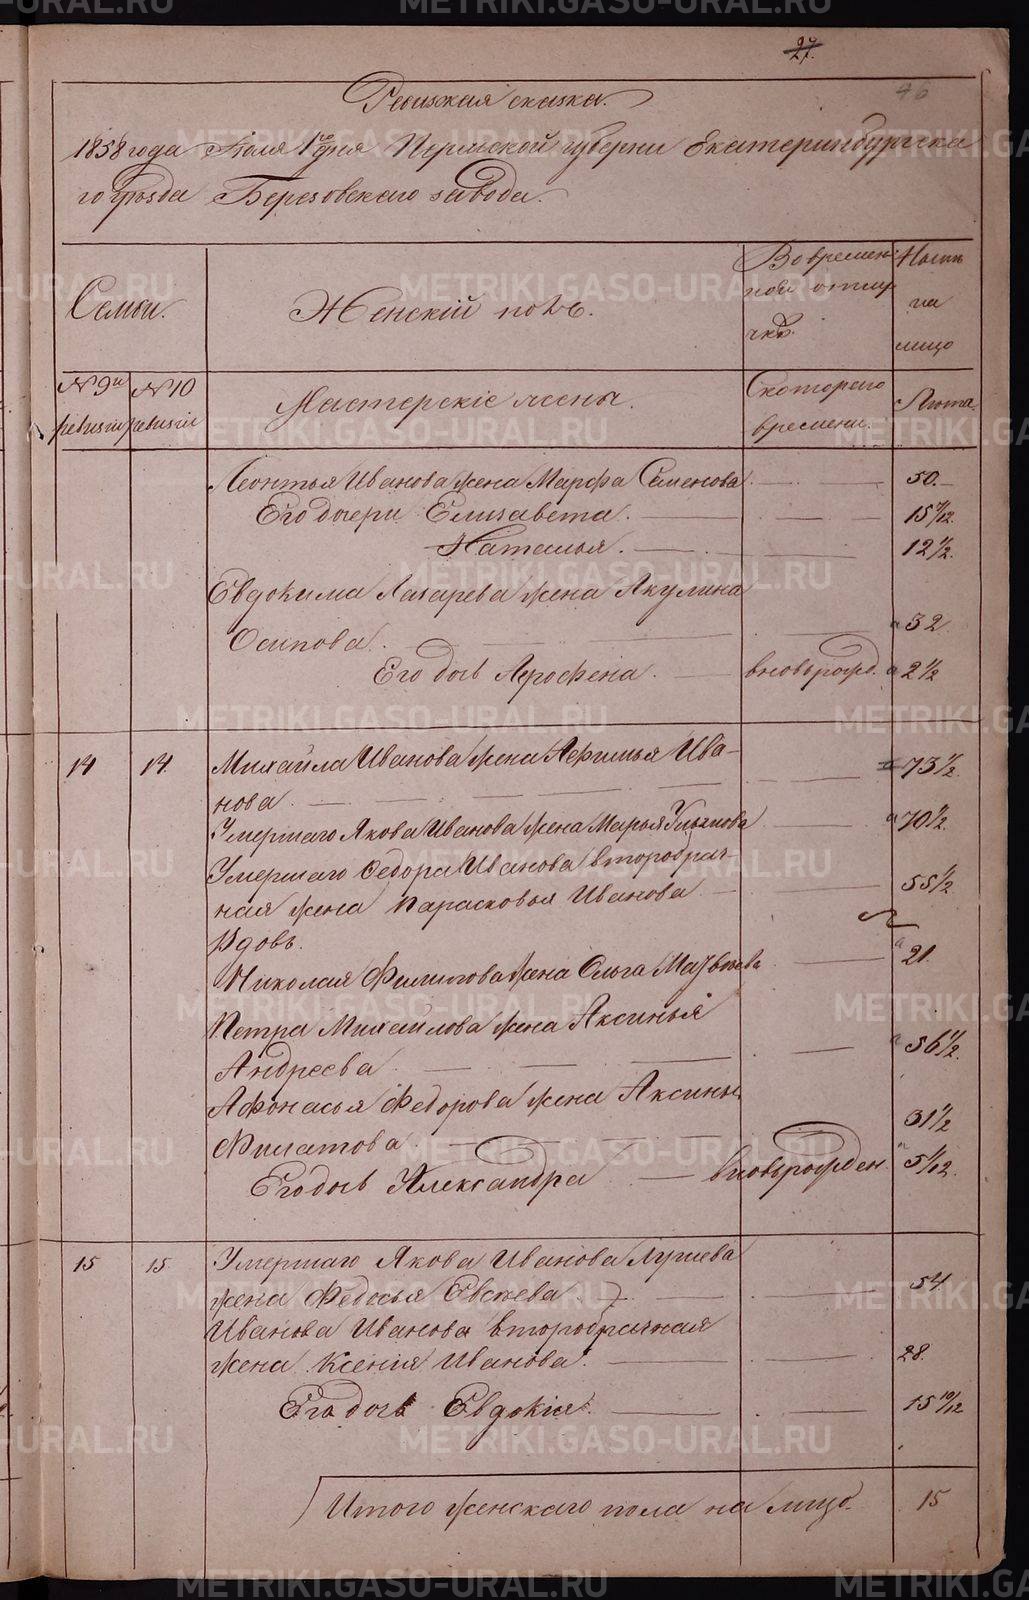 27.
46
Ревизская сказка.
1858 года Июля 1го дня Пермской губерни Екатеринбургска
го уѣзда Березовскаго завода.
Семьи.
Женскій полъ.
Во времен
ной отлу
чкѣ.
Налич
на
лицо
№ 9й
ревизіи
№ 10
ревизіи
Мастерскіе жены.
Скотораго
времени.
Лѣта.
Леонтья Иванова жена Марфа Семенова 50.
Его дочери Елизавета. 15 7/12.
Наталья. 12 1/2.
Евдокима Лазарева жена Акулина
Осипова. 32
Его дочь Агрофена. вновьрожд. 2 1/2
14 14. Михайла Иванова жена Афимья Ива-
нова. 73 1/2.
Умершаго Якова Иванова жена Марья 70 1/2.
Умершаго Федора Иванова второбрач-
ная жена Парасковья Иванова 55 1/2
Вдовъ.
Николая Филипова жена Ольга Матвѣева 21.
Петра Михайлова жена Аксинья
Андреева. 56 1/2.
Афонасья Федорова жена Аксинья
Филатова 31 1/2
Его дочь Александра вновьрожден. 5/12.
15 15. Умершаго Якова Иванова
жена Федосья Евсѣева 54
Иванова Иванова второбрачная
жена Ксенія Иванова. 28.
Его дочь Евдокія. 15 10/12
Итого женскаго пола на лицо. 15
METRIKI.GASO-URAL.RU